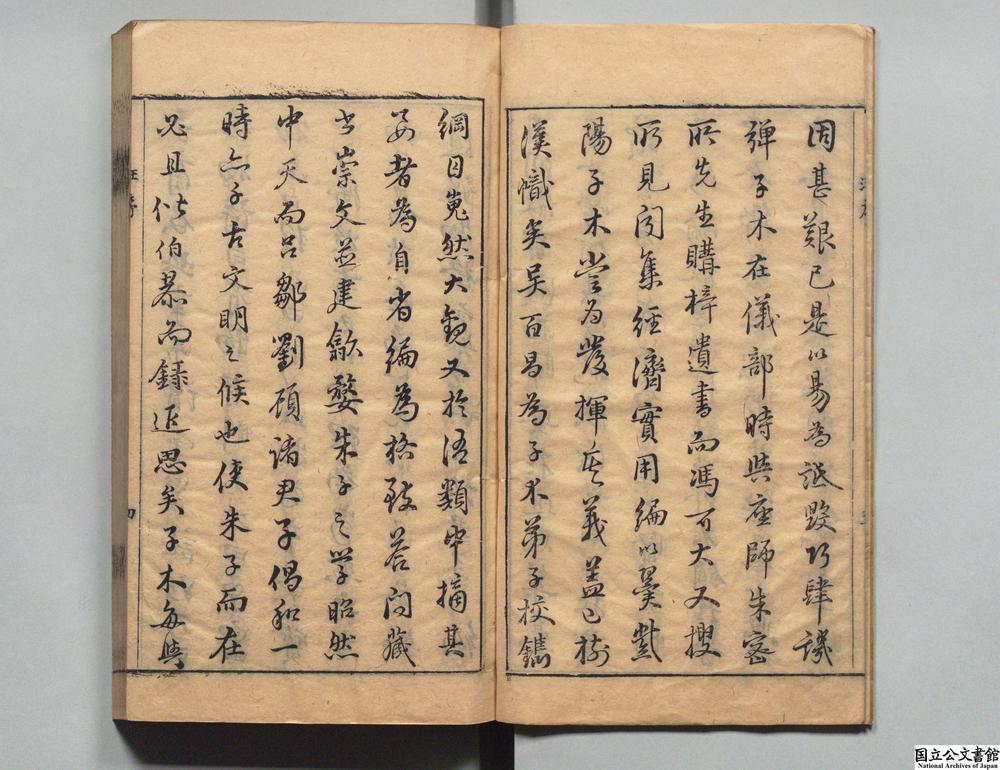 因甚艱已是以易為詆毀巧肆譏
彈子木在儀部時與座師朱密
所先生購梓遺書而馮可大又搜
所見聞集經濟實用編以翼紫
陽子木嘗為發揮其義蓋已樹
漢幟矣吳百昌為子木弟子校鐫
綱目嵬然大觀又於語類中摘其
要者為自省編為格致荅問藏
書崇文並建歙婺朱子之學昭然
中天而呂鄒劉顧諸君子倡和一
時亦千古文明之候也使朱子而在
必且從伯恭而録近思矣子木每與
国立公文書館
National Archives of Japan